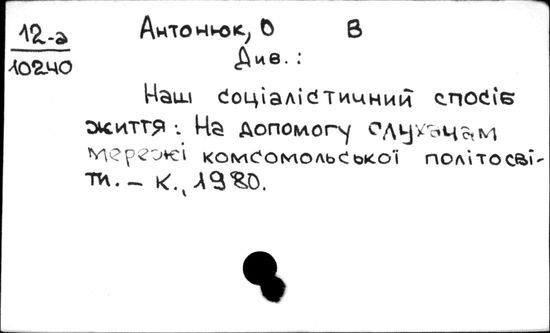 12-а
10240
Антонюк, О В
Див.:
Наш соціалістичний спосіб
життя: На допомогу слухачам
мережі комсомольської політосві-
ти. – К., 1980.